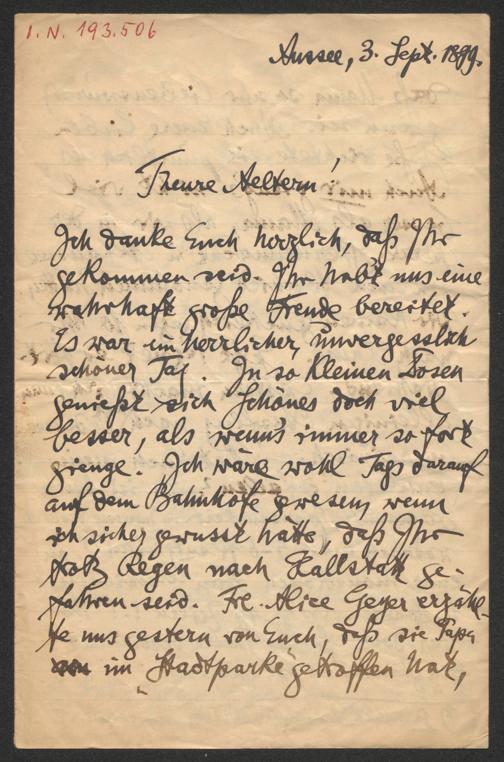 I.N. 193.506
Aussee, 3. Sept. 1899.
Theure Aeltern!
Ich danke Euch herzlich, daß Ihr
gekommen seid. Ihr habt uns eine
wahrhaft große Freude bereitet.
Es war ein herrlicher, unvergesslich
schöner Tag. In so kleinen Dosen
genießt sich Schönes doch viel
besser, als wenn's immer so fort
gienge. Ich wäre wohl Tags darauf
auf dem Bahnhofe gewesen, wenn
ich sicher gewusst hätte, daß Ihr
trotz Regen nach Hallstatt ge-
fahren seid. Frl. Alice Geyer erzähl-
te uns gestern von Euch, daß sie Papa
im „Stadtparke" getroffen hat,